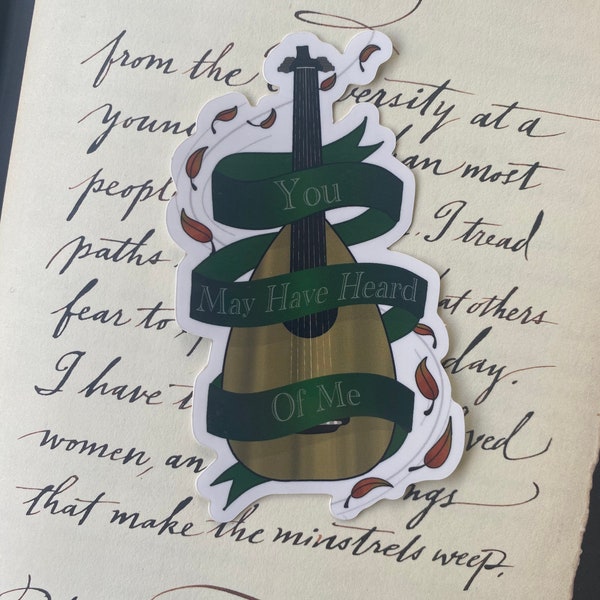 from the ersity at a
youn an most
peopl . I tread
paths at others
fear to day.
I have t ved
women, an ngs
that make the minstrels weep.
You
May Have Heard
Of Me